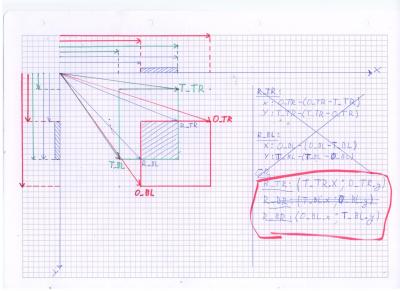 X
T_TR
O_TR
R_TR
T_BL
R_BL
O_BL
Y
R_TR:
X: O_TR-(O_TR-T_TR)
Y: T_TR-(T_TR-O_TR)
R_BL:
X: O_BL-(O_BL-T_BL)
Y: T_BL-(T_BL-O_BL)
R_TR: (T_TR.x ; O_TR.y)
R_BR: (T_BL.x ; O_BL.y)
R_BR: (O_BL.x ; T_BL.y)